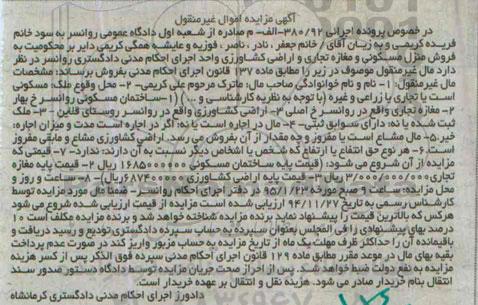 آگهی مزایده اموال غیرمنقول
در خصوص پرونده اجرائی ۳۸۰/۹۲-الف-م صادره از شعبه اول دادگاه عمومی روانسر به سود خانم
فریده کریمی و به زیان آقای / خانم جعفر، نادر، ناصر، فوزیه و عایشه همگی کریمی دایر بر محکومیت به
فروش منزل مسکونی و مغازه تجاری و اراضی کشاورزی واحد اجرای احکام مدنی دادگستری روانسر در نظر
دارد مال غیرمنقول موصوف در زیر را مطابق ماده ۱۳۷ قانون اجرای احکام مدنی بفروش برساند: مشخصات
مال غیرمنقول: ۱- نام و نام خوانوادگی صاحب مال: ماترک مرحوم علی کریمی- ۲- محل وقوع ملک: مسکونی
است یا تجاری یا زراعی و غیره (با توجه به نظریه کارشناسی و ...) (۱-ساختمان مسکونی روانسر خ بهار
۲-مغازه تجاری واقع در روانسر خ اصلی ۳-اراضی کشاورزی واقع در روانسر روستای قلاین ۳- ملک
ثبت شده یا نه: دارای سوابق ثبتی- ۴- مال در اجاره است یا نه: اگر در اجاره است مدت و میزان اجاره:
خیر. ۵- مال مشاع است یا مفروز و چه مقدار از آن بفروش می رسد. اراضی کشاورزی مشاع و مابقی مفروز
است. ۶- هر نوع حق انتفاع یا ارتفاع که شخص یا اشخاص دیگر نسبت به آن دارند: ندارد- ۷- قیمتی که
مزایده از آن شروع می شود: (قیمت پایه ساختمان مسکونی ۱۶۸۵۰۰۰۰۰۰ ریال ۲- قیمت پایه مغازه
تجاری ۳/۰۰۰/۰۰۰/۰۰۰ ریال ۳- قیمت پایه اراضی کشاورزی ۶۸۷۴۰۰۰۰۰ ریال)- ۸- ساعت و روز و
محل مزایده: ساعت ۹ صبح مورخه ۹۵/۱/۲۳ در دفتر اجرای احکام روانسر- ضمناً مال مورد مزایده توسط
کارشناس رسمی به تاریخ ۹۴/۱۱/۲۷ ارزیابی شده است مزایده از قیمت ارزیابی شده شروع می شود
هرکس که بالاترین قیمت را پیشنهاد نماید برنده مزایده شناخته خواهد شد و برنده مزایده مکلف است ۱۰
درصد بهای پیشنهادی را فی المجلس بعنوان سپرده به حساب سپرده دادگستری تودیع و رسید دریافت و
باقیمانده آن را حداکثر ظرف مهلت یک ماه از تاریخ مزایده به حساب مزبور واریز کند در صورت عدم پرداخت
بقیه بهای مال در موعد مقرر مطابق ماده ۱۲۹ قانون اجرای احکام مدنی سپرده فوق الذکر پس از کسر هزینه
مزایده به نفع دولت ضبط خواهد شد. پس از احراز صحت جریان مزایده توسط دادگاه دستور صدور سند
انتقال بنام خریدار صادر می شود. هزینه نقل و انتقال بر عهده خریدار است.
دادورز اجرای احکام مدنی دادگستری کرمانشاه